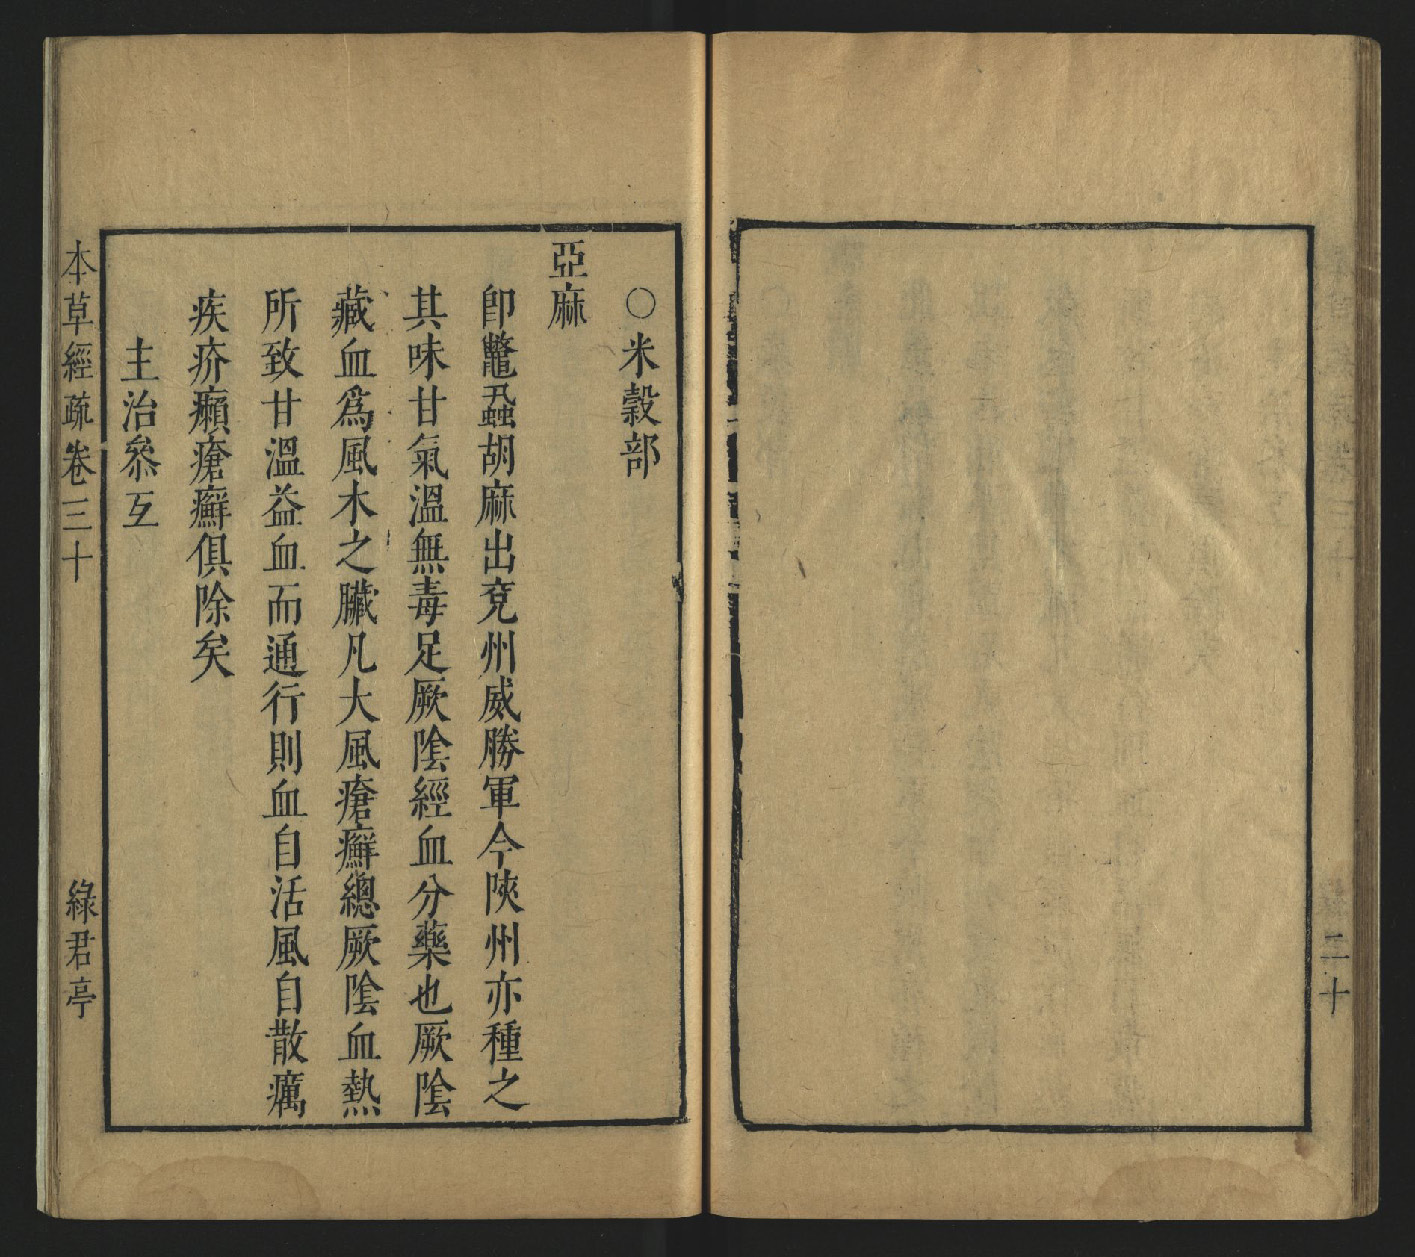 二十
○米穀部
亞麻
卽鼈蝨胡麻出兗州威勝軍今陝州亦種之
其味甘氣溫無毒足厥陰經血分藥也厥陰
藏血爲風木之臟凡大風瘡癬總厥陰血熱
所致甘溫益血而通行則血自活風自散癘
疾疥癩瘡癬俱除矣
主治叅互
本草經疏卷三十
綠君亭